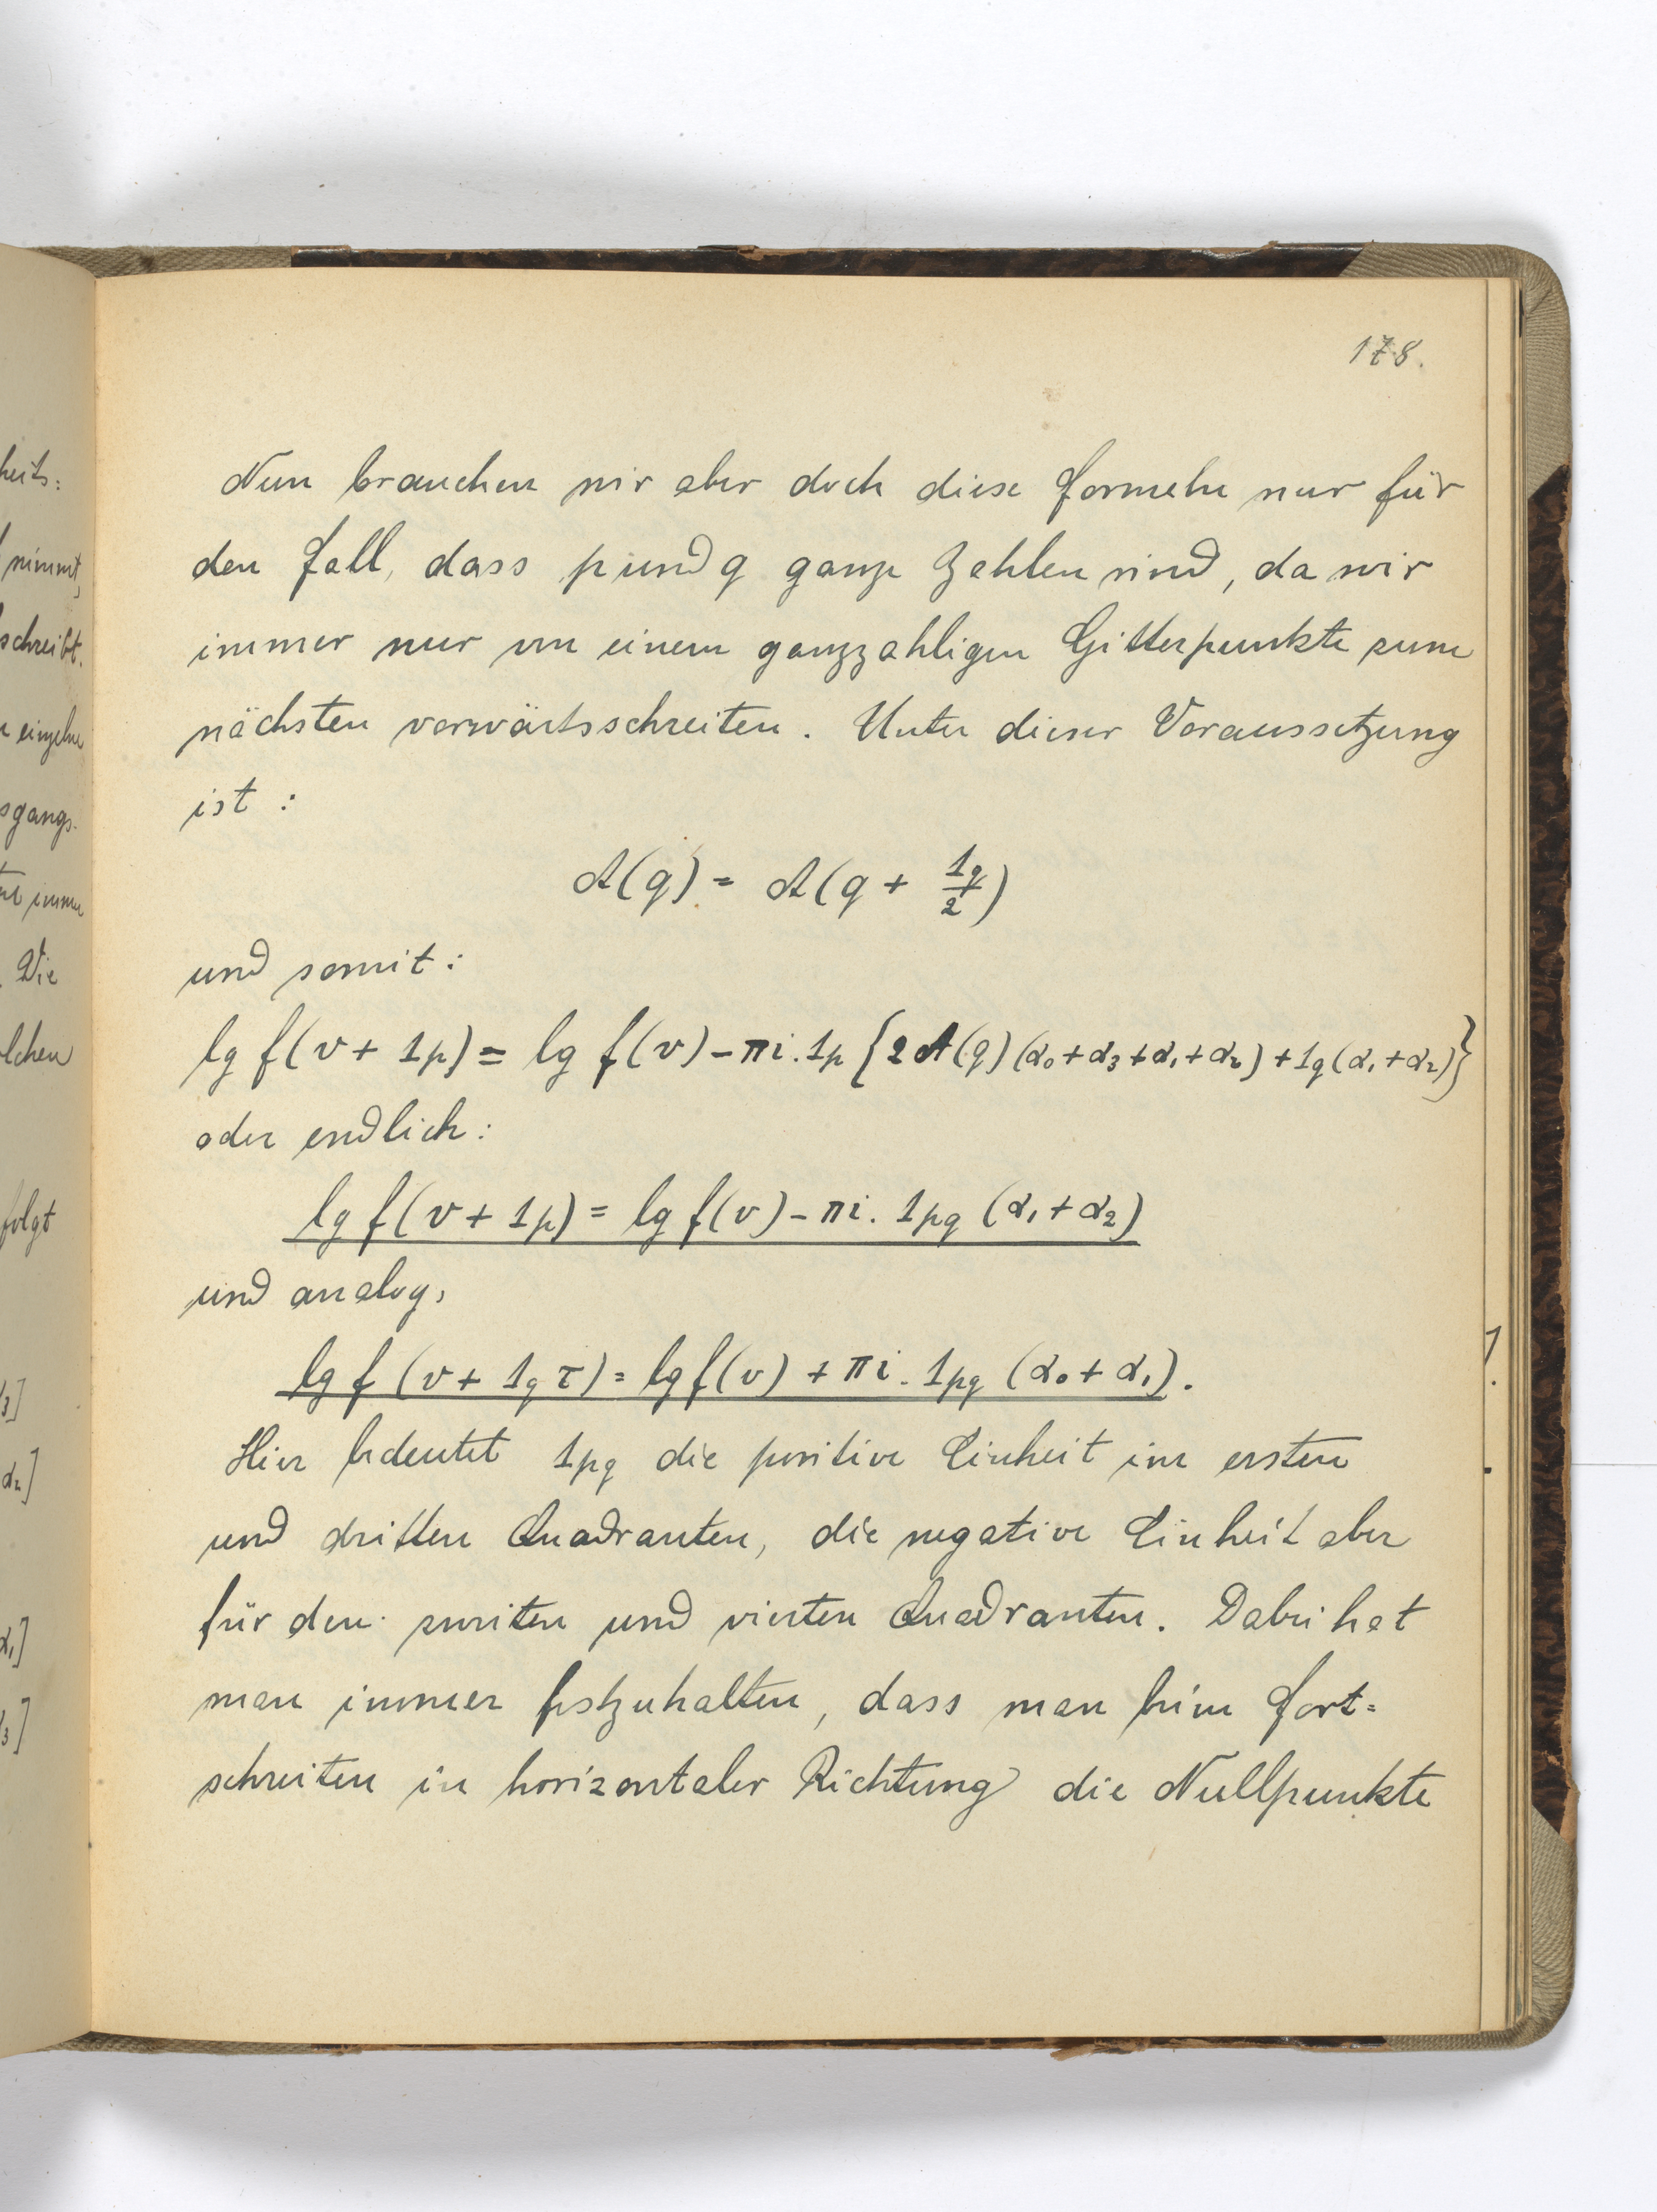 178.
Nun brauchen wir aber doch diese Formeln nur für
den Fall, dass p und q ganze Zahlen sind, da wir
immer nur von einem ganzzahligen Gitterpunkte zum
nächsten vorwärtsschreiten. Unter dieser Voraussetzung
ist :
A(q) = A(q + 1q/2)
und somit :
lg f(v + 1p) = lg f(v) - πi. 1p {2A(q)(α0 + α3 + α1 + α2) + 1q(α1 + α2)}
oder endlich :
lg f(v + 1p) = lg f(v) - πi. 1pq (α1 + α2)
und analog,
lg f (v + 1q τ) = lg f(v) + πi. 1pq (α0 + α1).
Hier bedeutet 1pq die positive Einheit im ersten
und dritten Quadranten, die negative Einheit aber
für den zweiten und vierten Quadranten. Dabei hat
man immer festzuhalten, dass man beim Fort=
schreiten in horizontaler Richtung die Nullpunkte
heits:
nimmt,
schreibt.
einzelne
sgangs-
immer
Die
lchen
folgt
3]
α2]
α1]
3]